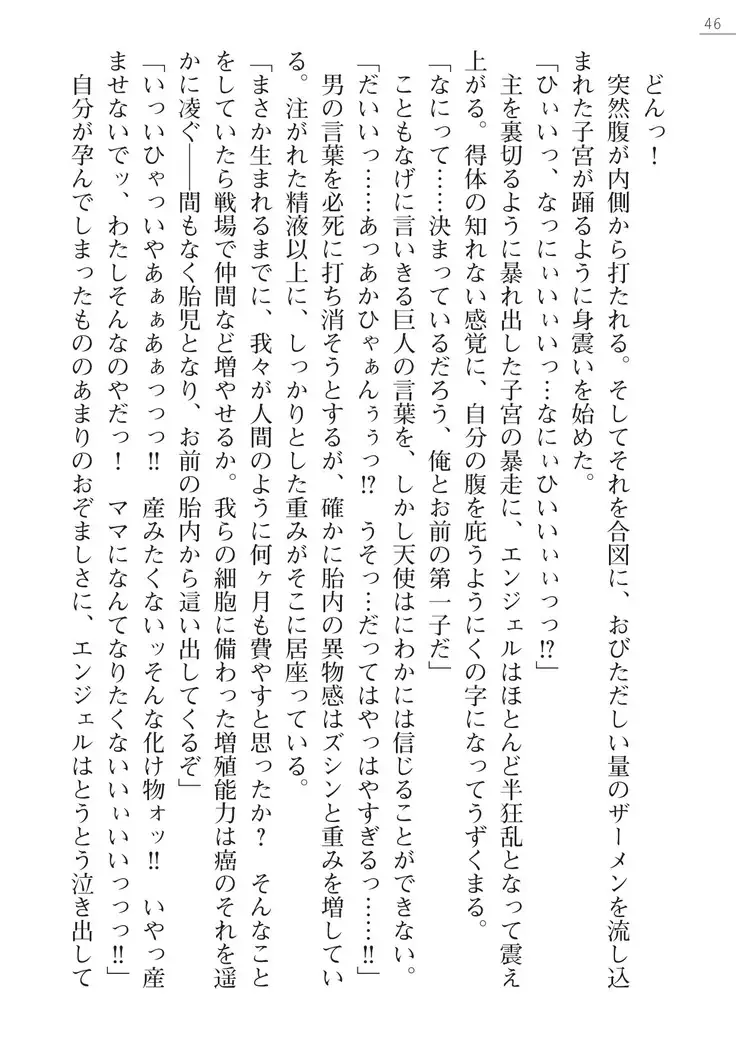 46
どんっ！
突然腹が内側から打たれる。そしてそれを合図に、おびただしい量のザーメンを流し込
まれた子宮が踊るように身震いを始めた。
「ひぃいっ、なっにぃいぃいっ…なにぃひいいぃぃっっ⁉」
主を裏切るように暴れ出した子宮の暴走に、エンジェルはほとんど半狂乱となって震え
上がる。得体の知れない感覚に、自分の腹を庇うようにくの字になってうずくまる。
「なにって……決まっているだろう、俺とお前の第一子だ」
こともなげに言いきる巨人の言葉を、しかし天使はにわかには信じることができない。
「だいいっ……あっあかひゃぁんぅぅっ⁉　うそっ…だってはやっはやすぎるっ……‼」
男の言葉を必死に打ち消そうとするが、確かに胎内の異物感はズシンと重みを増してい
る。注がれた精液以上に、しっかりとした重みがそこに居座っている。
「まさか生まれるまでに、我々が人間のように何ヶ月も費やすと思ったか？　そんなこと
をしていたら戦場で仲間など増やせるか。我らの細胞に備わった増殖能力は癌のそれを遥
かに凌ぐ――間もなく胎児となり、お前の胎内から這い出してくるぞ」
「いっいひゃっいやあぁぁあぁっつっ‼　産みたくないッそんな化け物ォッ‼　いやっ産
ませないでッ、わたしそんなのやだっ！　ママになんてなりたくないいぃいいっつっ‼」
自分が孕んでしまったもののあまりのおぞましさに、エンジェルはとうとう泣き出して